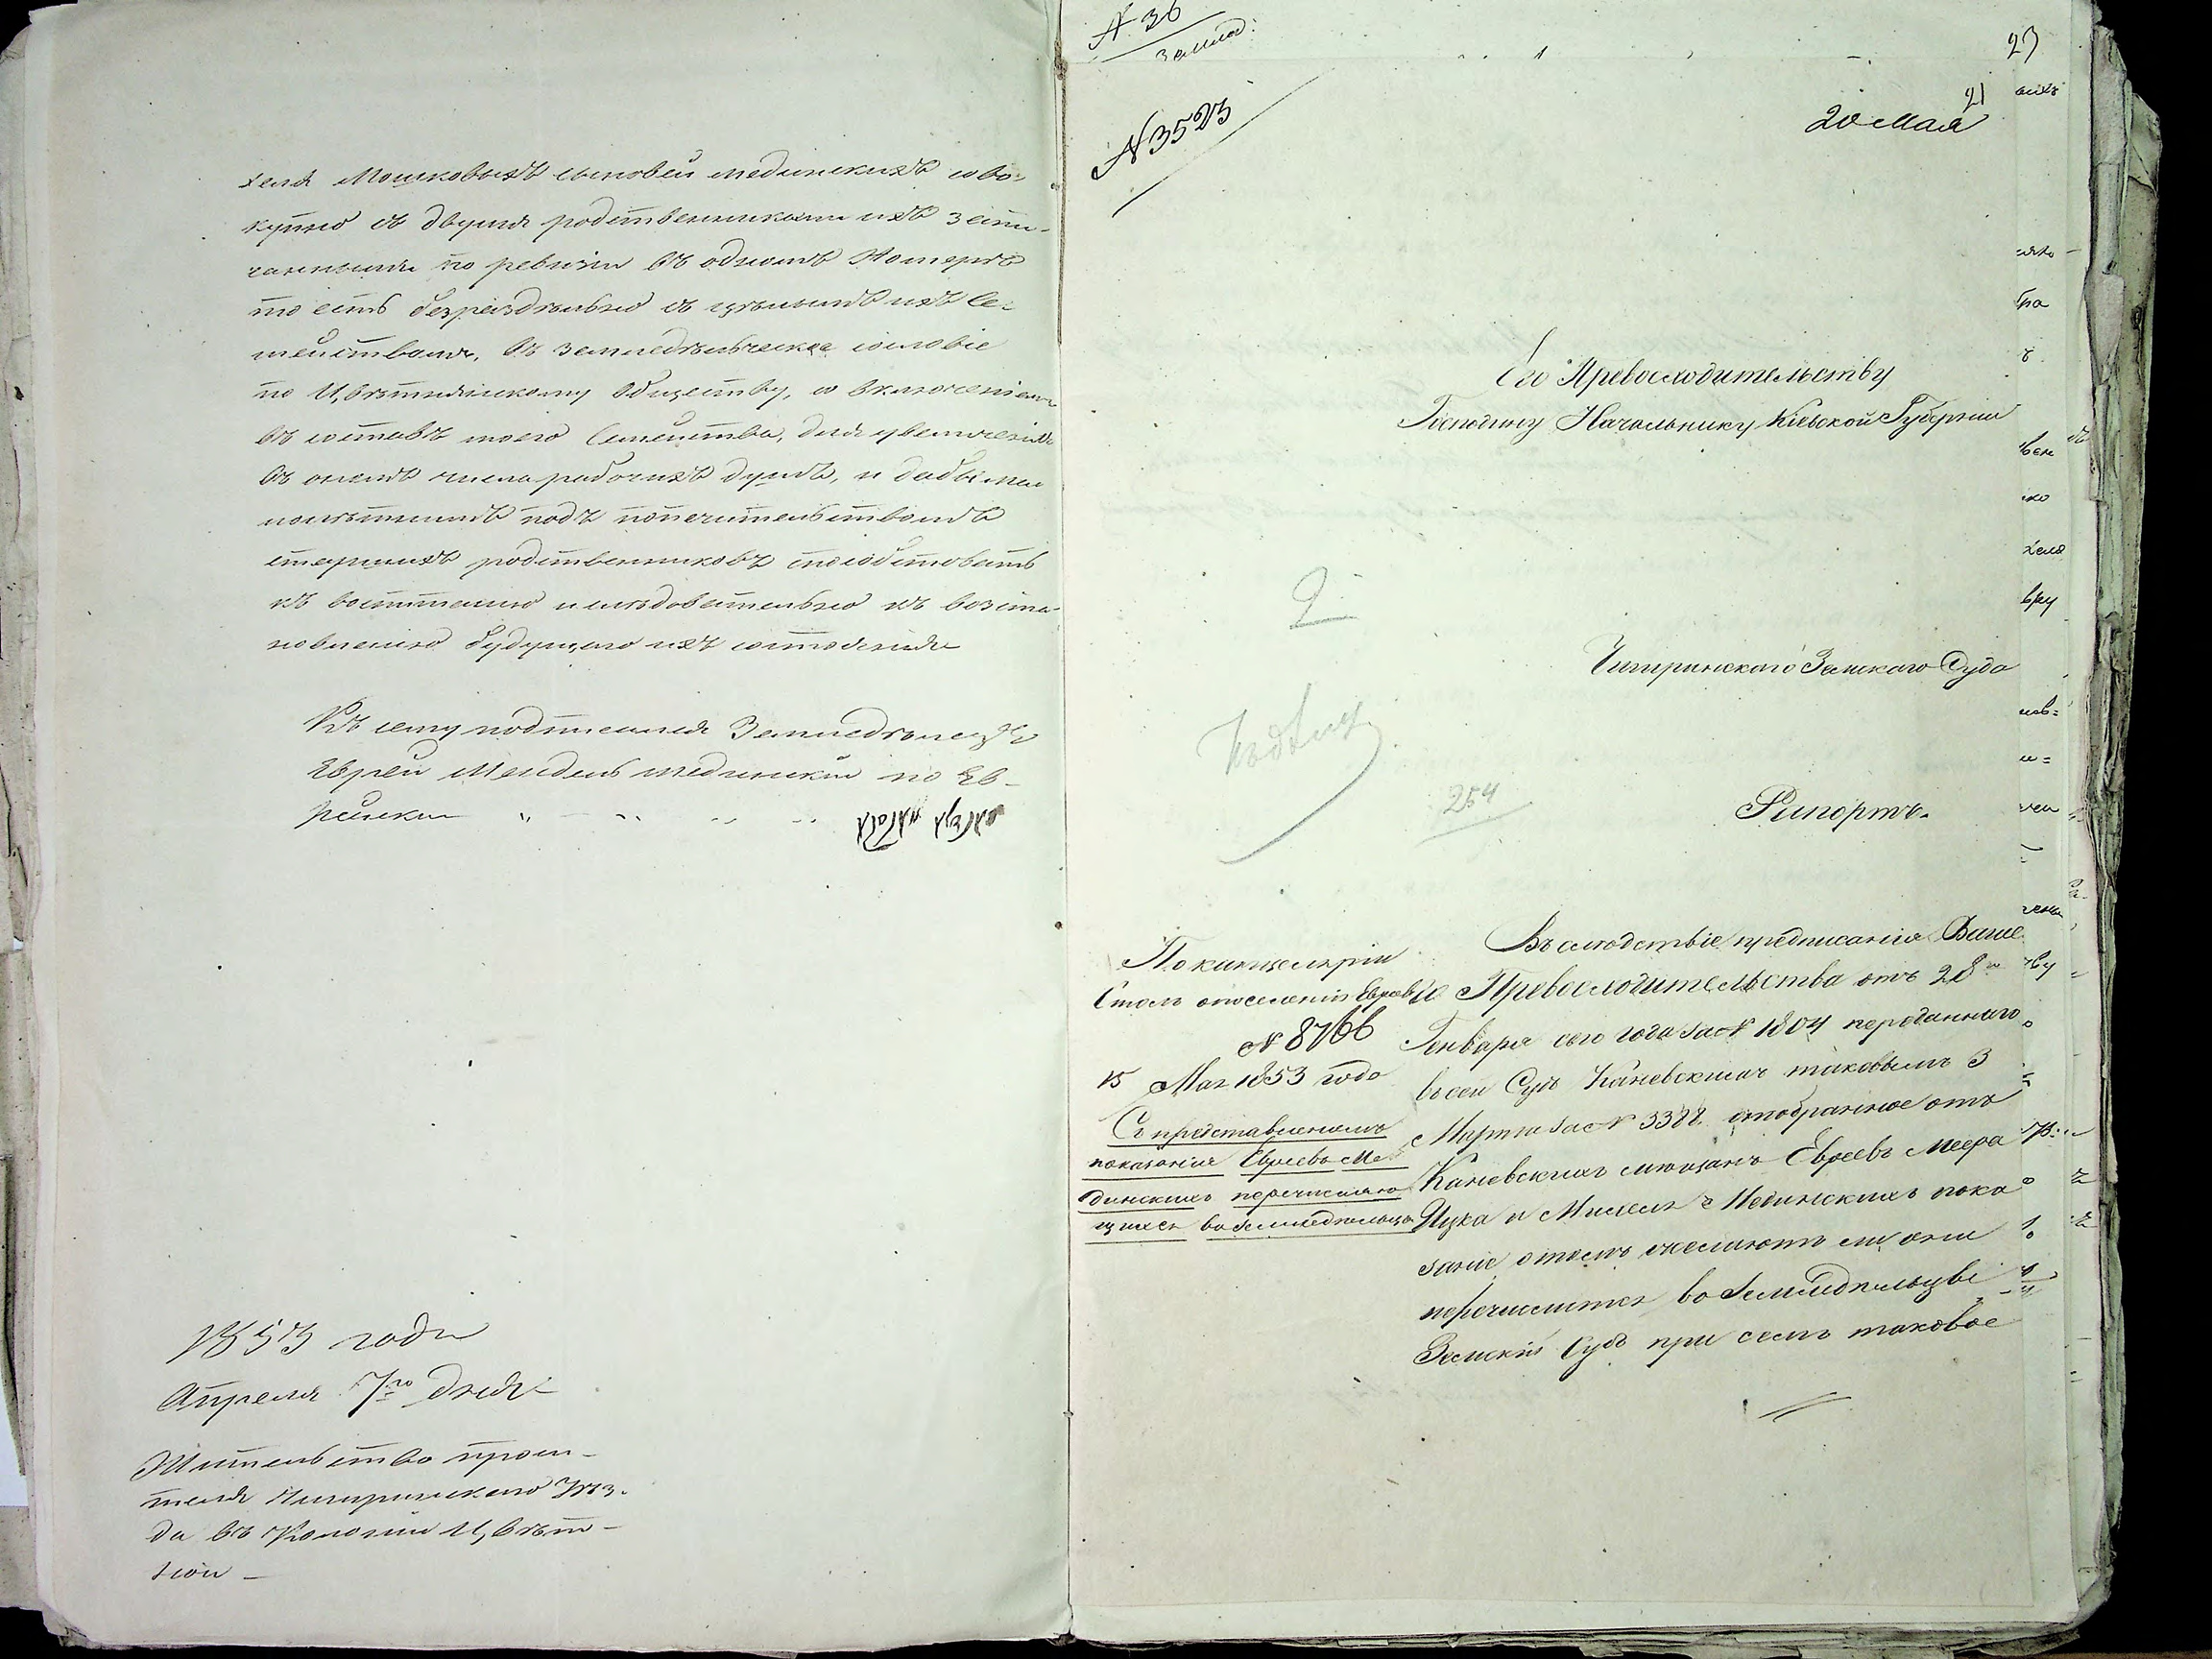 хеля Мошковыхъ сыновей Мединскихъ сово-
купно съ двумя родственниками ихъ запи-
санными по ревизіи въ одномъ Номеръ
то есть безраздѣльно съ цѣлымъ ихъ Се-
мействомъ, въ земледѣльческое сословіе
по Цвѣтнянскому Обществу, и включеніемъ
въ составъ моего Семейства, для увеличенія
въ ономъ числа рабочихъ душъ, и дабы мало
лѣтнимъ подъ попечительствомъ
старшихъ родственниковъ способствовать
къ воспитанію и слѣдовательно къ возста-
новленію будущаго ихъ состоянія
Къ сему подписался Земледѣлецъ
Еврей Мендель Мединскій по Ев-
рейски
1853 года
Апреля 7го дня
Жительство проси-
теля Чигиринскаго Уѣз-
да въ Колоніи Цвѣт-
ной
N 36
N 3523
23
21
20 Мая
Его Превосходительству
Господину Начальнику Кіевской Губерніи
2
Чигиринскаго Земскаго Суда
Къ дѣлу
254
Рапортъ.
По канцеляріи
Столъ о поселеніи Евреевъ
N 8766
15 Мая 1853 года
Съ представленіемъ
показанія Евреевъ Ме
динскихъ перечисляю
щихся въ земледѣльцы
Въ слѣдствіе предписанія Ваше
го Превосходительства отъ 28го
Генваря сего года за N 1804 переданнаго
въ сей Судъ Каневскимъ таковымъ 3
Марта за N 3388 отобранное отъ
Каневскихъ мѣщанъ Евреевъ Меера
Ицка и Михеля Мединскихъ пока
заніе о томъ желаютъ ли они
перечислится въ Земледѣльцы
Земскій Судъ при семъ таковое